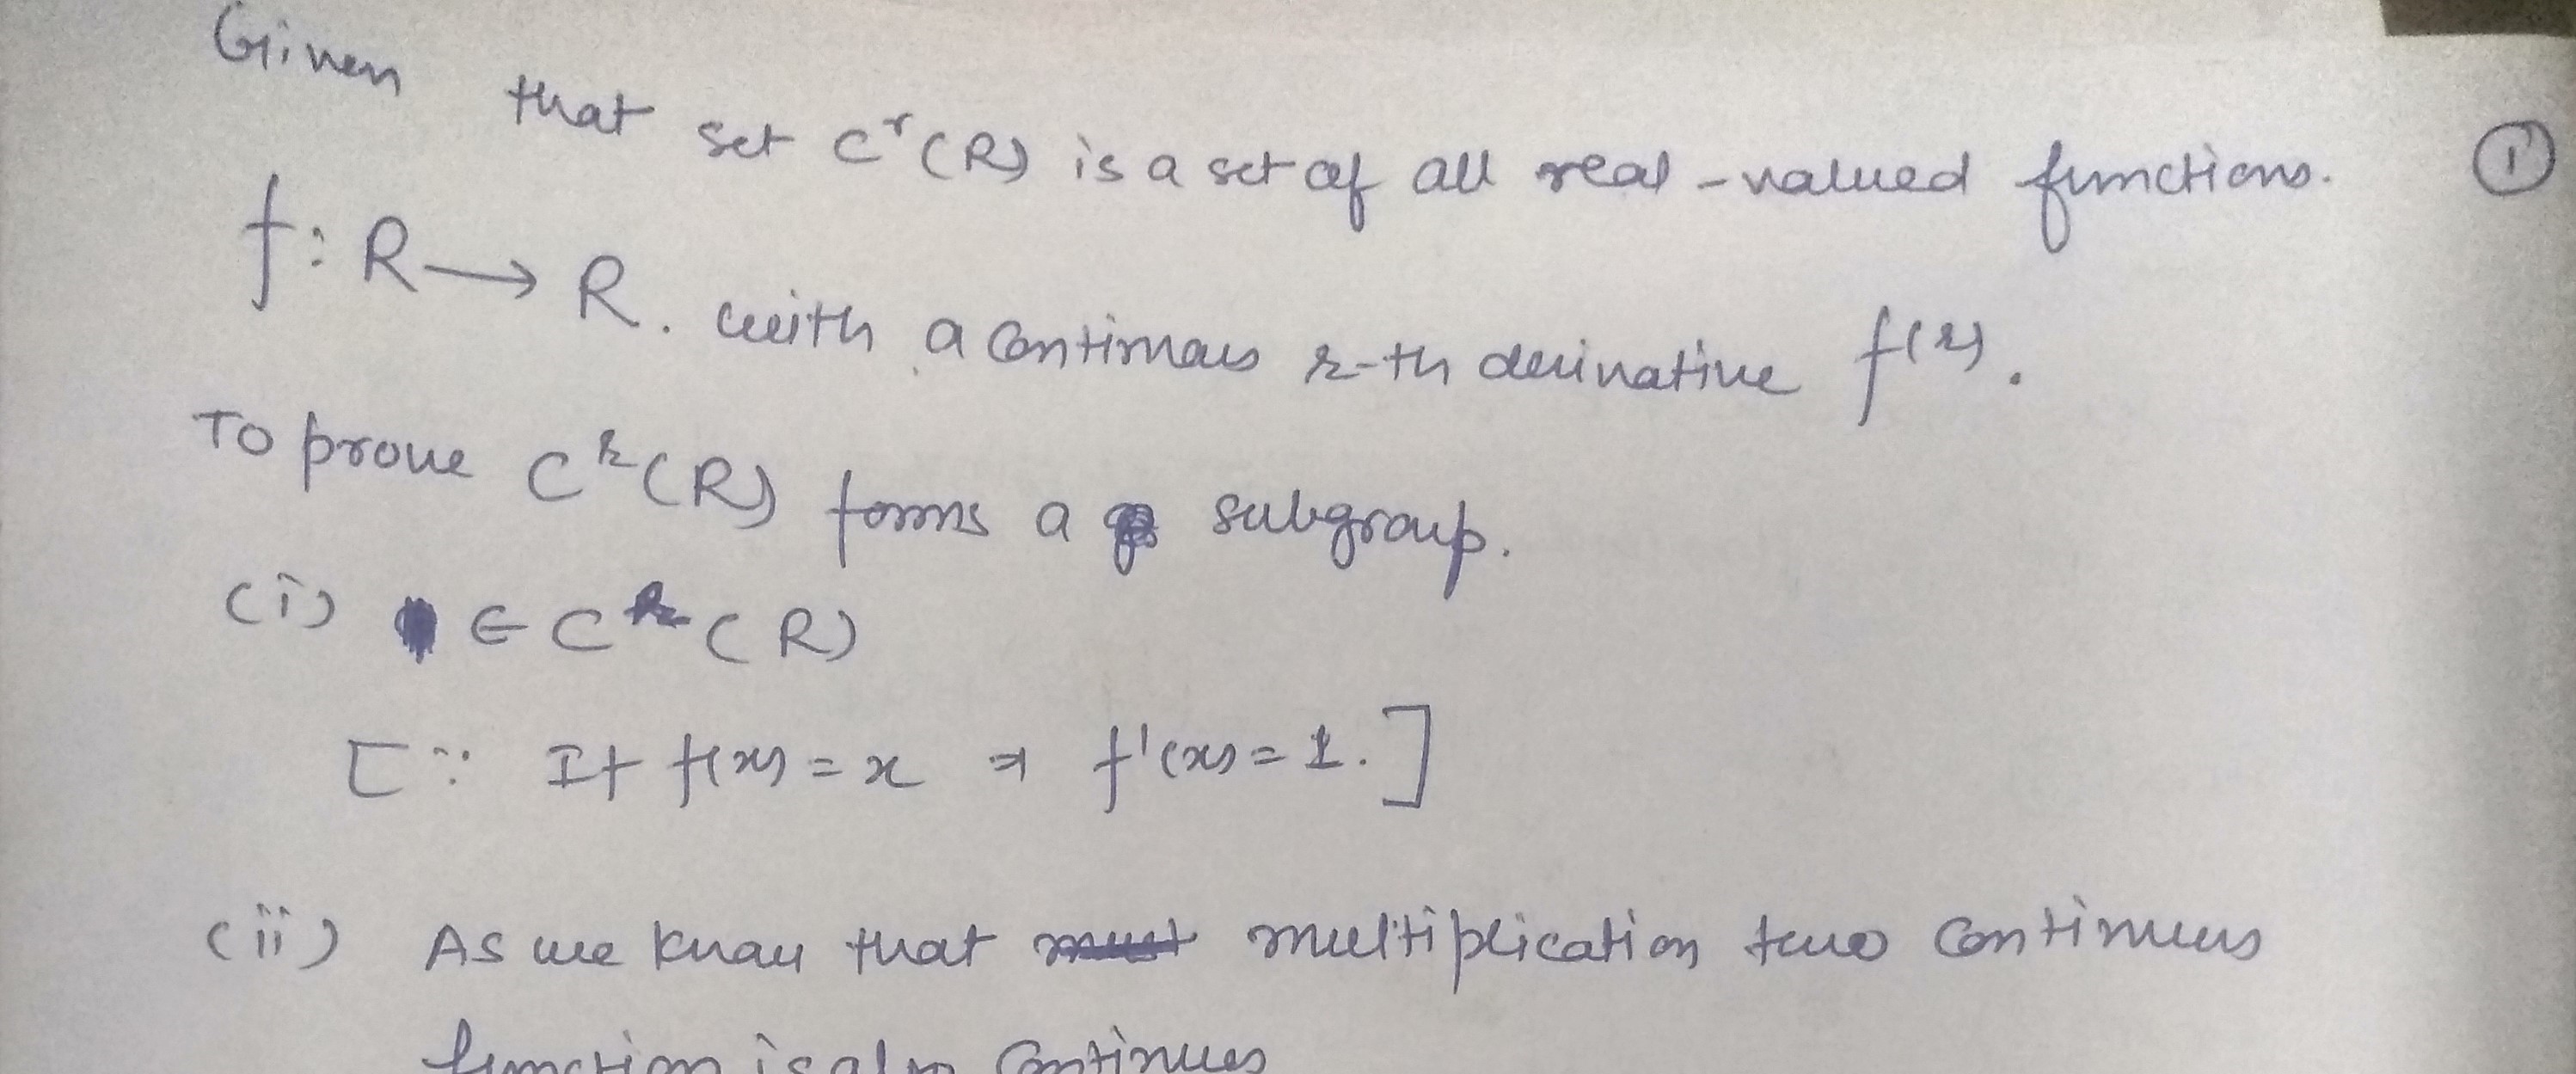 Given that set C^r(R) is a set of all real-valued functions. ①
f: R → R. with a continuous r-th derivative f^(r).
To prove C^r(R) forms a subgroup.
(i) ∈ C (R)
[∵ If f(x) = x ⇒ f'(x) = 1.]
(ii) As we know that multiplication two continuus
function is also continues